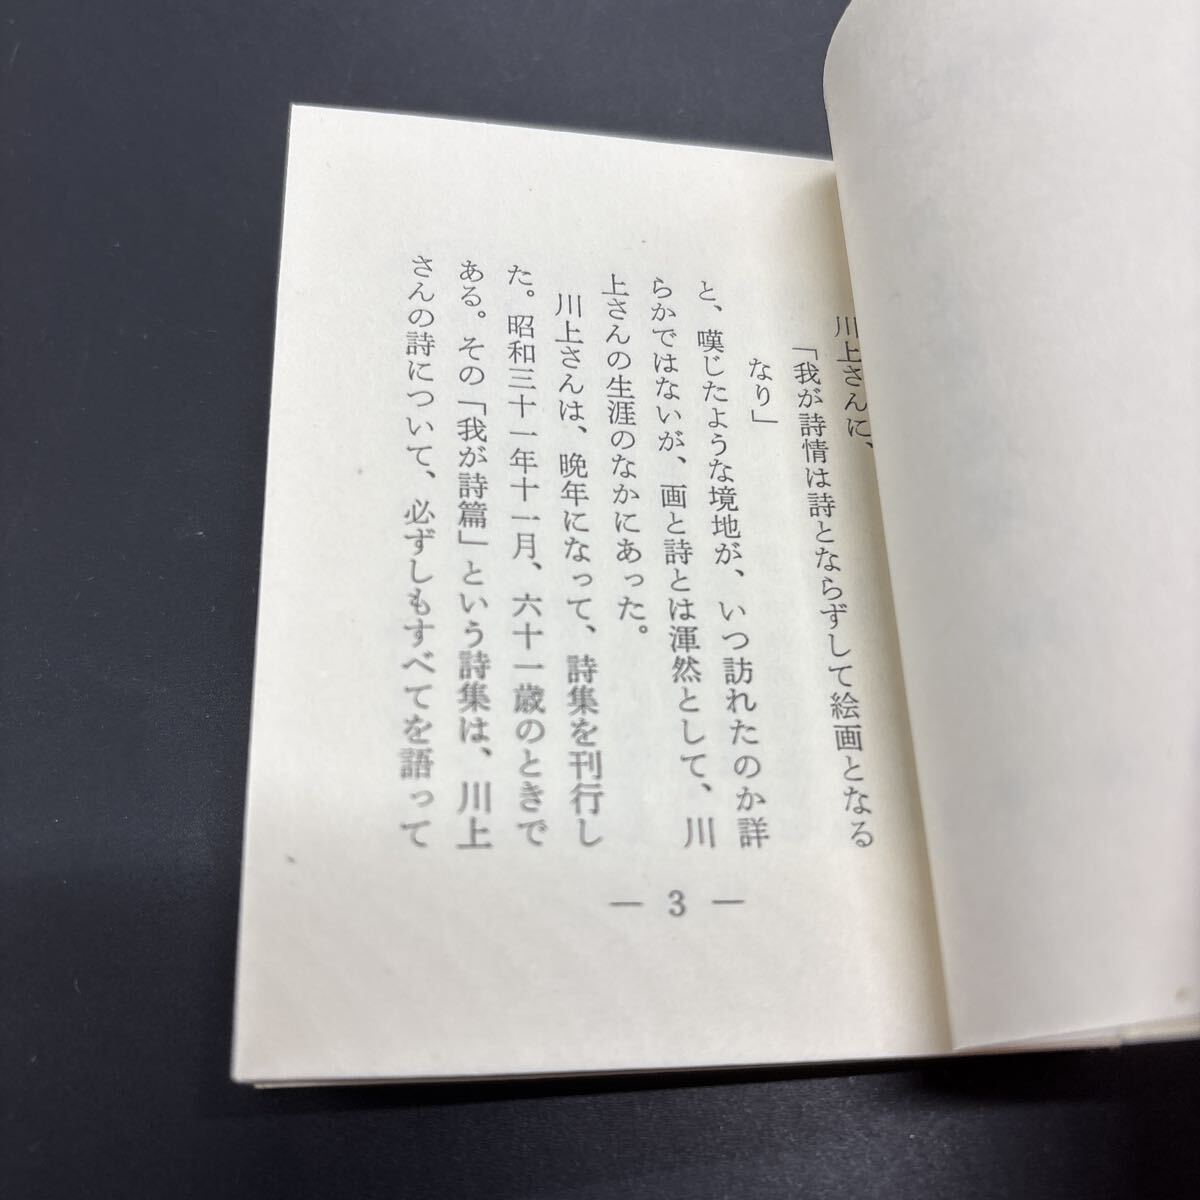 川上さんに、
「我が詩情は詩とならずして絵画となる
なり」
と、嘆じたような境地が、いつ訪れたのか詳
らかではないが、画と詩とは渾然として、川
上さんの生涯のなかにあった。
川上さんは、晩年になって、詩集を刊行し
た。昭和三十一年十一月、六十一歳のときで
ある。その「我が詩篇」という詩集は、川上
さんの詩について、必ずしもすべてを語って
— 3 —